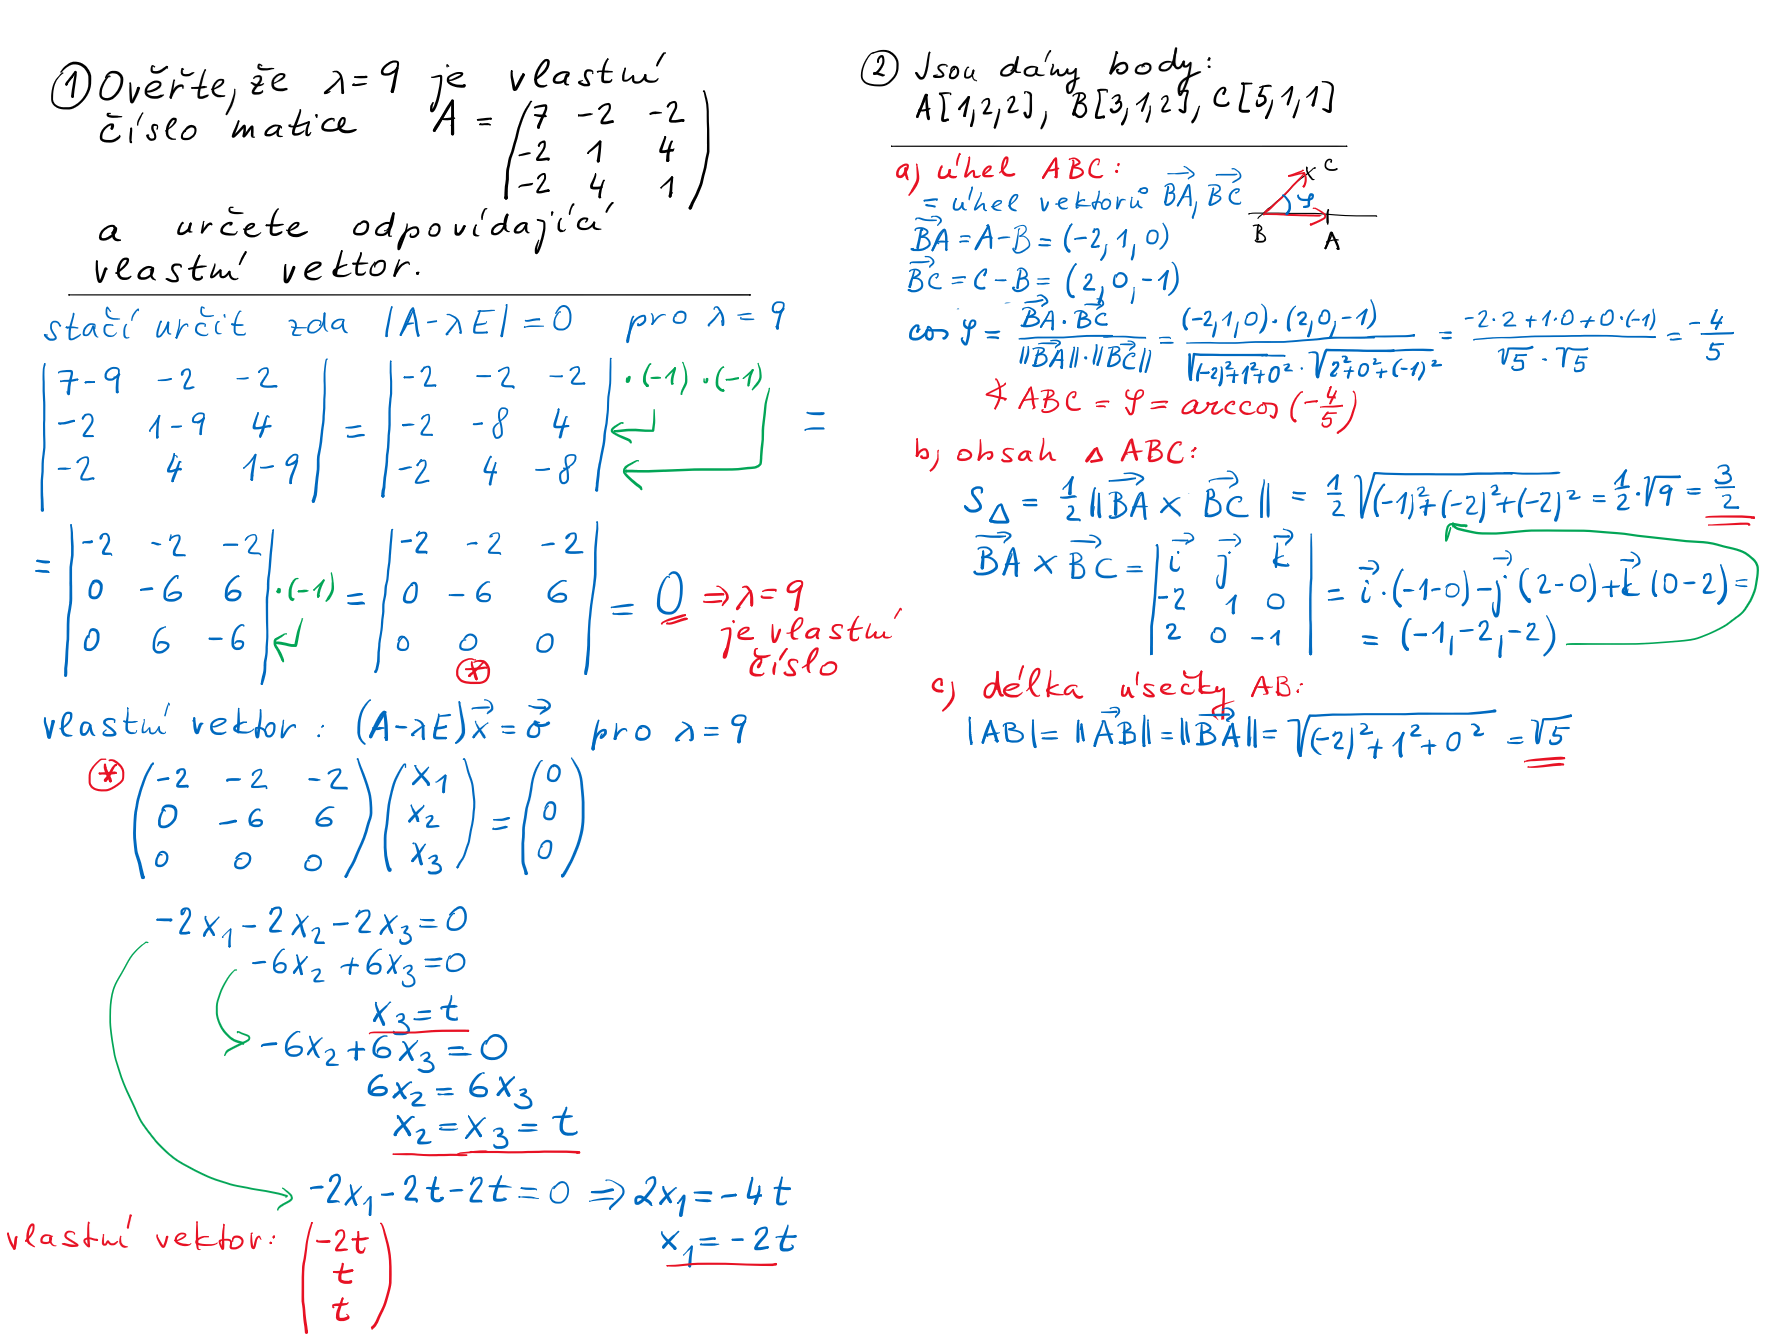 ① Ověřte, že λ = 9 je vlastní
číslo matice A = (7 -2 -2
-2 1 4
-2 4 1)
a určete odpovídající
vlastní vektor.
stačí určit zda |A-λE| = 0 pro λ = 9
|7-9 -2 -2
-2 1-9 4
-2 4 1-9| = |-2 -2 -2
-2 -8 4
-2 4 -8| ·(-1) ·(-1) =
= |-2 -2 -2
0 -6 6
0 6 -6| ·(-1) = |-2 -2 -2
0 -6 6
0 0 0| = 0 ⇒ λ = 9
je vlastní
číslo
(*)
vlastní vektor: (A-λE)x⃗ = o⃗ pro λ = 9
(*) (-2 -2 -2
0 -6 6
0 0 0) (x₁
x₂
x₃) = (0
0
0)
-2x₁ - 2x₂ - 2x₃ = 0
-6x₂ + 6x₃ = 0
x₃ = t
-6x₂ + 6x₃ = 0
6x₂ = 6x₃
x₂ = x₃ = t
-2x₁ - 2t - 2t = 0 ⇒ 2x₁ = -4t
x₁ = -2t
vlastní vektor: (-2t
t
t)
② Jsou dány body:
A[1,2,2], B[3,1,2], C[5,1,1]
a) úhel ABC:
= úhel vektorů BA⃗, BC⃗
C
φ
B A
BA⃗ = A-B = (-2, 1, 0)
BC⃗ = C-B = (2, 0, -1)
cos φ = BA⃗·BC⃗ / ‖BA⃗‖·‖BC⃗‖ = (-2,1,0)·(2,0,-1) / √((-2)²+1²+0²)·√(2²+0²+(-1)²) = -2·2+1·0+0·(-1) / √5·√5 = -4/5
∢ ABC = φ = arccos(-4/5)
b) obsah △ ABC:
S△ = 1/2 ‖BA⃗ × BC⃗‖ = 1/2 √((-1)²+(-2)²+(-2)²) = 1/2·√9 = 3/2
BA⃗ × BC⃗ = |i⃗ j⃗ k⃗
-2 1 0
2 0 -1| = i⃗·(-1-0) - j⃗(2-0) + k⃗(0-2) =
= (-1,-2,-2)
c) délka úsečky AB:
|AB| = ‖AB⃗‖ = ‖BA⃗‖ = √((-2)²+1²+0²) = √5